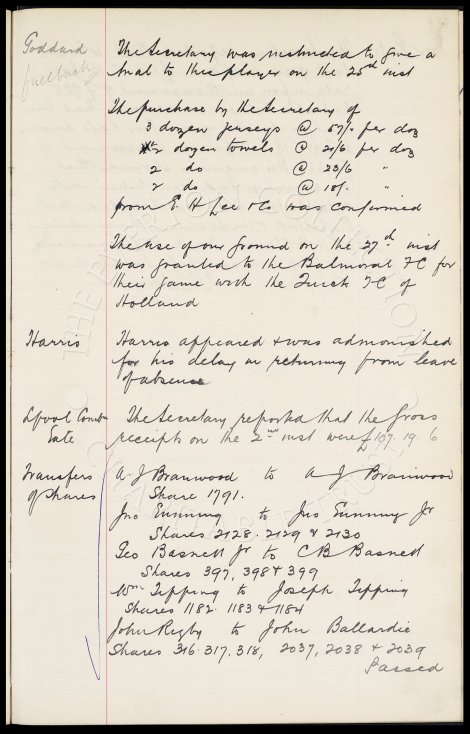 Goddard
fullback
The Secretary was instructed to give a
trial to this player on the 25th inst
The purchase by the Secretary of
3 dozen jerseys @ 57/- per doz
2 dozen towels @ 21/6 per doz
2 do @ 23/6 "
2 do @ 18/- "
from E H Lee & Co was confirmed
The use of our Ground on the 27th inst
was granted to the Balmoral FC for
their game with the Quick FC of
Holland
Harris
Harris appeared & was admonished
for his delay in returning from leave
of absence
Lpool Combn
Gate
The Secretary reported that the Gross
receipts on the 2nd inst were £107.19.6
Transfers
of Shares
A J Branwood to A J Branwood
Share 1791.
Jno Gunning to Jno Gunning Jr
Shares 2128. 2129 & 2130
Geo Basnett Jr to C B Basnett
Shares 397, 398 & 399
Wm Tipping to Joseph Tipping
Shares 1182. 1183 & 1184
John Rigby to John Ballardie
Shares 316. 317. 318, 2037, 2038 & 2039
Passed